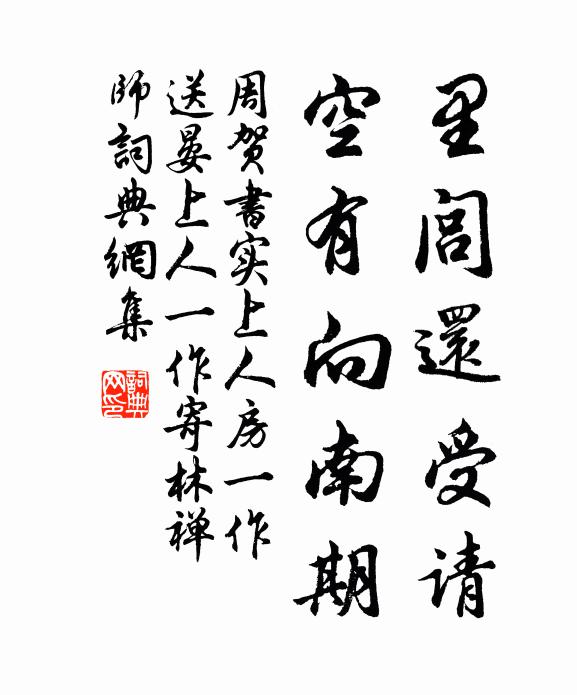 里閭還受请
空有向南期
周贺書实上人房一作
送晏上人一作寄林禅
師詞典網集
詞典
网印